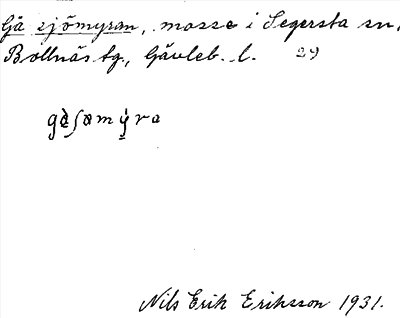 Gåsjömyran, mosse i Segersta sn,
Bollnäs tg., Gävleb. l. 29
gɑ̀ʃømý̱ra
Nils Erik Eriksson 1931.